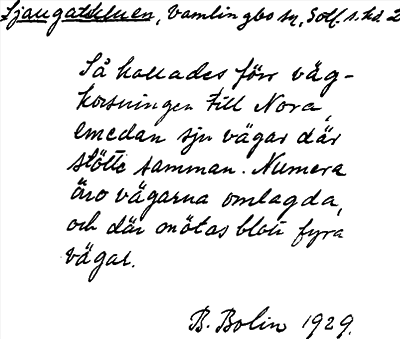 Sjaugatdelnen, Vamlingbo sn, Gotl. s. hd. 2
Så kallades förr väg-
korsningen till Nora,
emedan sju vägar där
stötte samman. Numera
äro vägarna omlagda,
och där mötas blott fyra
vägar.
B. Bolin 1929.